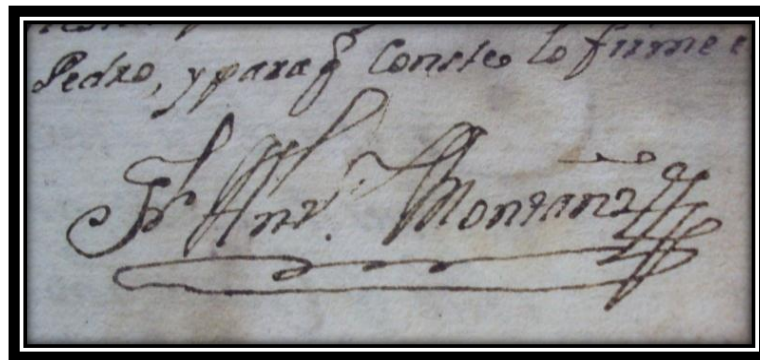 Pedro, y para q̃ Conste lo firme e
Fr Anto. Montañez